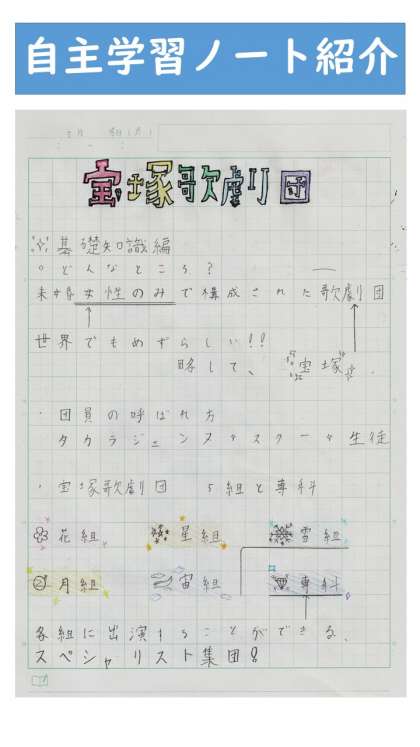 自主学習ノート紹介
宝塚歌劇団
基礎知識編
○どんなところ?
未婚女性のみで構成された歌劇団
世界でもめずらしい!!
略して、 宝塚
・団員の呼ばれ方
タカラジェンヌ
生徒
・宝塚歌劇団 5組と専科
花組 星組 雪組
月組 宙組 専科
各組に出演することができる、
スペシャリスト集団!